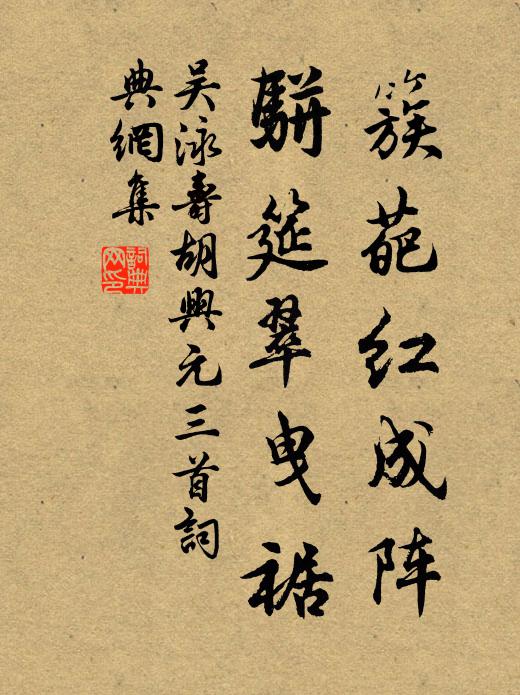 簇葩红成阵
骈筵翠曳裾
吴泳寿胡興元三首詞
典網集
詞典网印